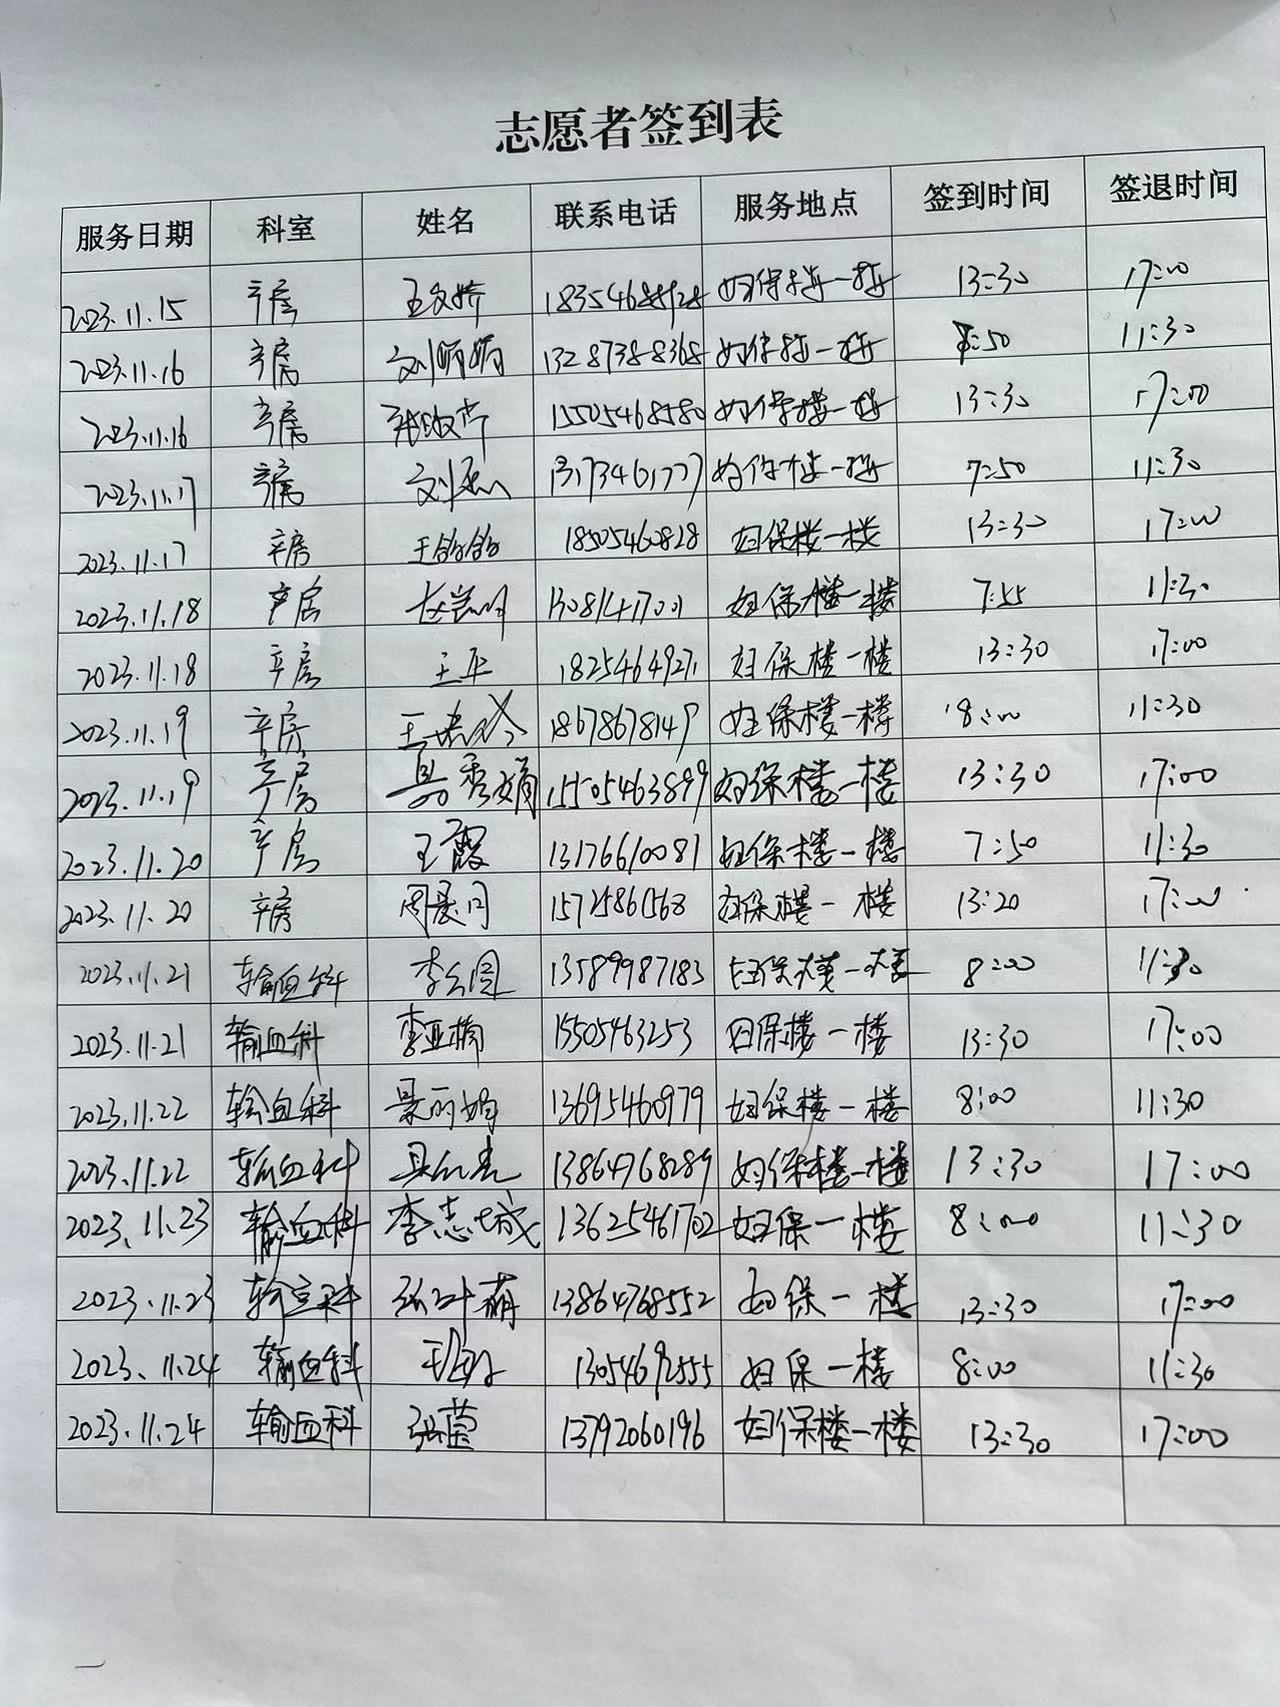 志愿者签到表
服务日期 科室 姓名 联系电话 服务地点 签到时间 签退时间
2023.11.15 产房 王文娇 妇保楼一楼 13:30 17:00
2023.11.16 产房 刘娟娟 13287388368 妇保楼一楼 7:50 11:30
2023.11.16 产房 15505468580 妇保楼一楼 13:30 17:00
2023.11.17 产房 13173461777 妇保楼一楼 7:50 11:30
2023.11.17 产房 18505460828 妇保楼一楼 13:30 17:00
2023.11.18 产房 妇保楼一楼 7:55 11:30
2023.11.18 产房 王平 妇保楼一楼 13:30 17:00
2023.11.19 产房 18678678149 妇保楼一楼 8:00 11:30
2023.11.19 产房 15505463899 妇保楼一楼 13:30 17:00
2023.11.20 产房 王霞 13176610081 妇保楼一楼 7:50 11:30
2023.11.20 产房 妇保楼一楼 13:20 17:00
2023.11.21 输血科 13589987183 妇保楼一楼 8:00 11:30
2023.11.21 输血科 李亚楠 15505463253 妇保楼一楼 13:30 17:00
2023.11.22 输血科 景丽娟 13695460979 妇保楼一楼 8:00 11:30
2023.11.22 输血科 13864768289 妇保楼一楼 13:30 17:00
2023.11.23 输血科 李志城 13625461702 妇保一楼 8:00 11:30
2023.11.23 输血科 张叶萌 13864768552 妇保一楼 13:30 17:00
2023.11.24 输血科 13054692555 妇保一楼 8:00 11:30
2023.11.24 输血科 张莹 13792060196 妇保楼一楼 13:30 17:00